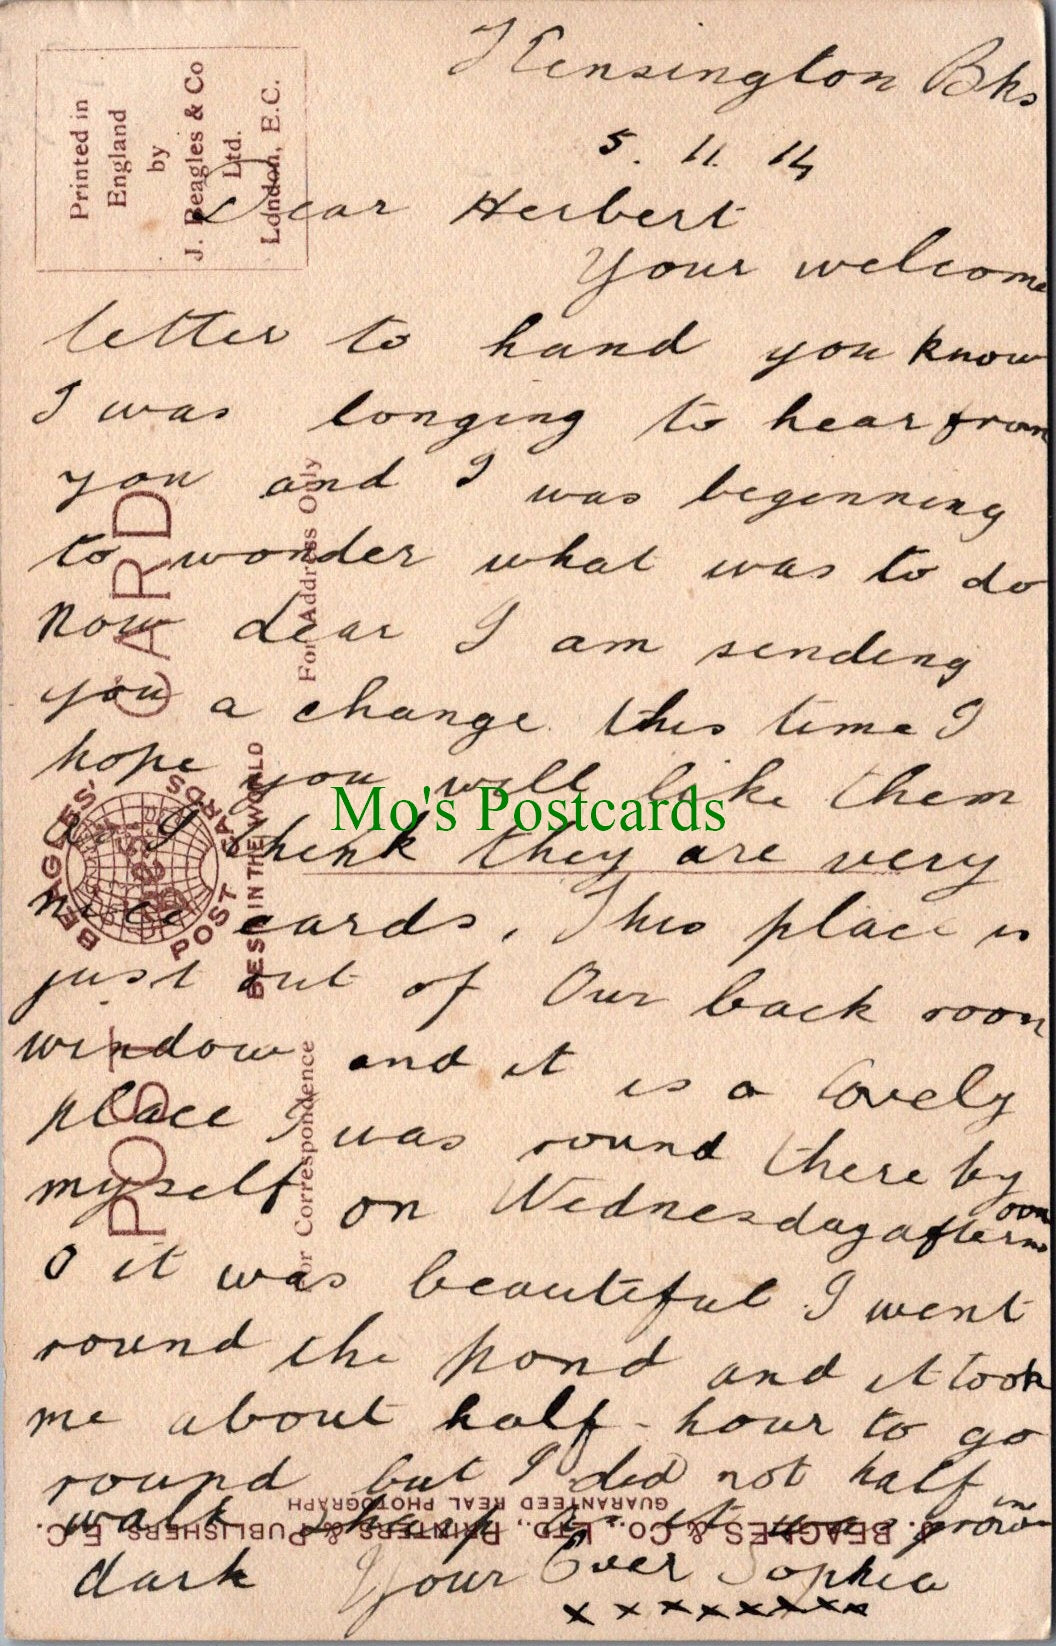 Kensington Bks
5. 11. 14
Dear Herbert
Your welcome
letter to hand you know
I was longing to hear from
you and I was beginning
to wonder what was to do
Now dear I am sending
you a change this time I
hope you will like them
as I think they are very
nice cards, This place is
just out of Our back room
window and it is a lovely
place I was round there by
myself on Wednesday afternoon
O it was beautiful I went
round the pond and it took
me about half-hour to go
round but I did not half
walk sharp as it was growing
dark Your Ever Sophia
x x x x x x x x
Printed in
England
by
J. Beagles & Co
Ltd.
London, E.C.
POST CARD
For Correspondence
For Address Only
BEAGLES' POST CARDS
BEST IN THE WORLD
J. BEAGLES & CO., LTD., PRINTERS & PUBLISHERS, E.C.
GUARANTEED REAL PHOTOGRAPH
Mo's Postcards